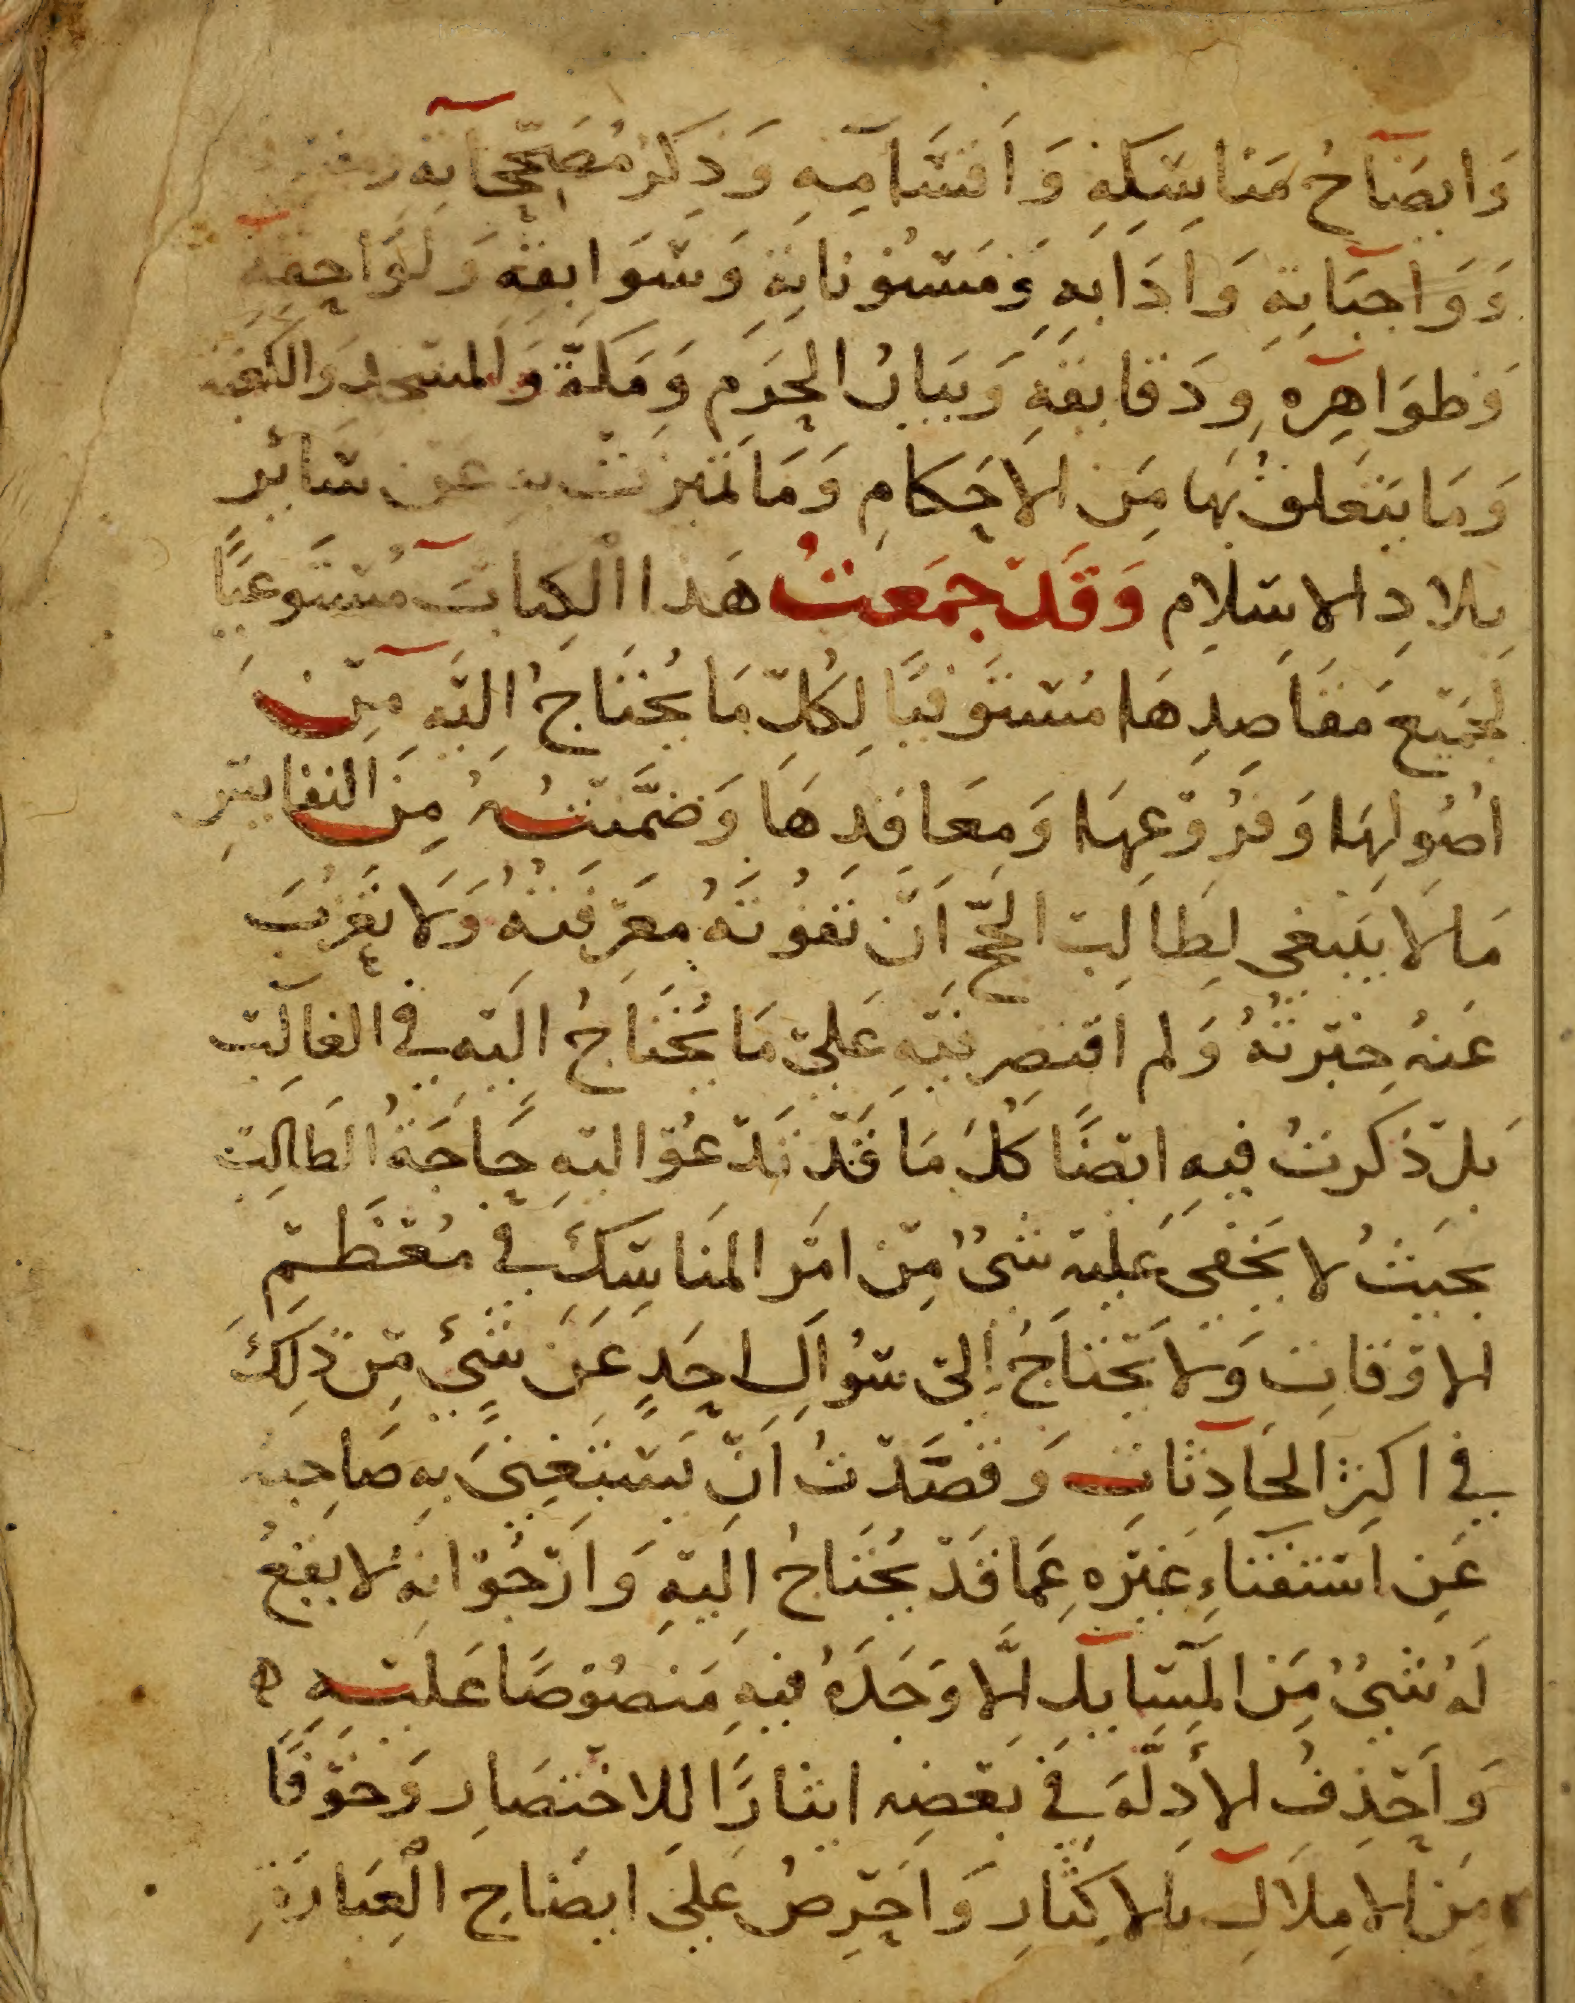 وَايضَاحُ مَنَاسِكِهِ وَاَقسَامِهِ وَذِكرُ مُصَحِّحَاتِهِ
وَوَاجبَاتِهِ وَادَابِهِ وَمَسْنُونَاتِهِ وَسَوَابِقِهِ وَلَوَاحِقِهِ
وَظوَاهِرِه وَدَقايقِهِ وَبَيَانُ الحَرَمِ وَمَكَّةَ وَالمسْجد وَالكَعْبَة
وَمَا يتَعَلقُ بهَا مِنَ الاحكَامِ وَمَا تَميزَتْ بهِ عَن سَائِر
بلَادِ الاسْلَامِ وَقَدْ جمَعتُ هَذا الْكِتابَ مُسْتَوعِبًا
لجَميْعِ مَقَاصِدِهَا مُسْتَوفيًا لِكُلِّ مَا يُحْتَاجُ اِليْهِ مِنْ
اصُولهَا وَفرُوْعِهَا وَمَعَاقدِهَا وَضمَّنْتُهُ مِنَ النفايسِ
مَا لَا يَنبَغي لِطَالِبِ الحجِّ اَنْ تَفُوتَهُ مَعْرِفَتُهُ وَلَا تَعْزُبَ
عَنهُ خِبْرتُهُ وَلم اقتَصِر فيْهِ عَلىْ مَا يُحْتَاجُ اليْهِ في الغالِبْ
بَلْ ذكرتُ فيهِ ايْضًا كُلَ مَا قَدْ تَدْعُوْ اليْهِ حَاجَةُ الطَالِبْ
بحَيثُ لا يَخفى عَليْهِ شَىْءٌ مِنْ امْر المَنَاسِكِ في مُعْظَمِ
الاوْقَاتِ وَلَا يَحْتَاجُ اِلىْ سُوَالِ احَدٍ عَنْ شَيْءٍ مِنْ ذَلِكَ
في اكثر الحَادِثاتِ وَقصَدْتُ اَنْ يَسْتَغْنىَ بهِ صَاحِبهُ
عَنِ اسْتفتَاءِ غَيْرِه عمَا قَدْ يُحتَاجُ اِليْهِ وَارْجُوْ انهُ لَا يقَعُ
لَهُ شَىْءٌ مِنَ المَسَايلِ اِلَّا وَجَدَهُ فيهِ مَنصُوْصًا عَليْهِ ه
وَاَحْذِفُ الأَدِلَّةَ في بَعْضِه ايثارًا للاختصَارِ وَخَوْفًا
مِنَ الامِلَالِ بالاكثَارِ وَاحْرِصُ عَلىَ ايضَاحِ الْعِبَارَةِ